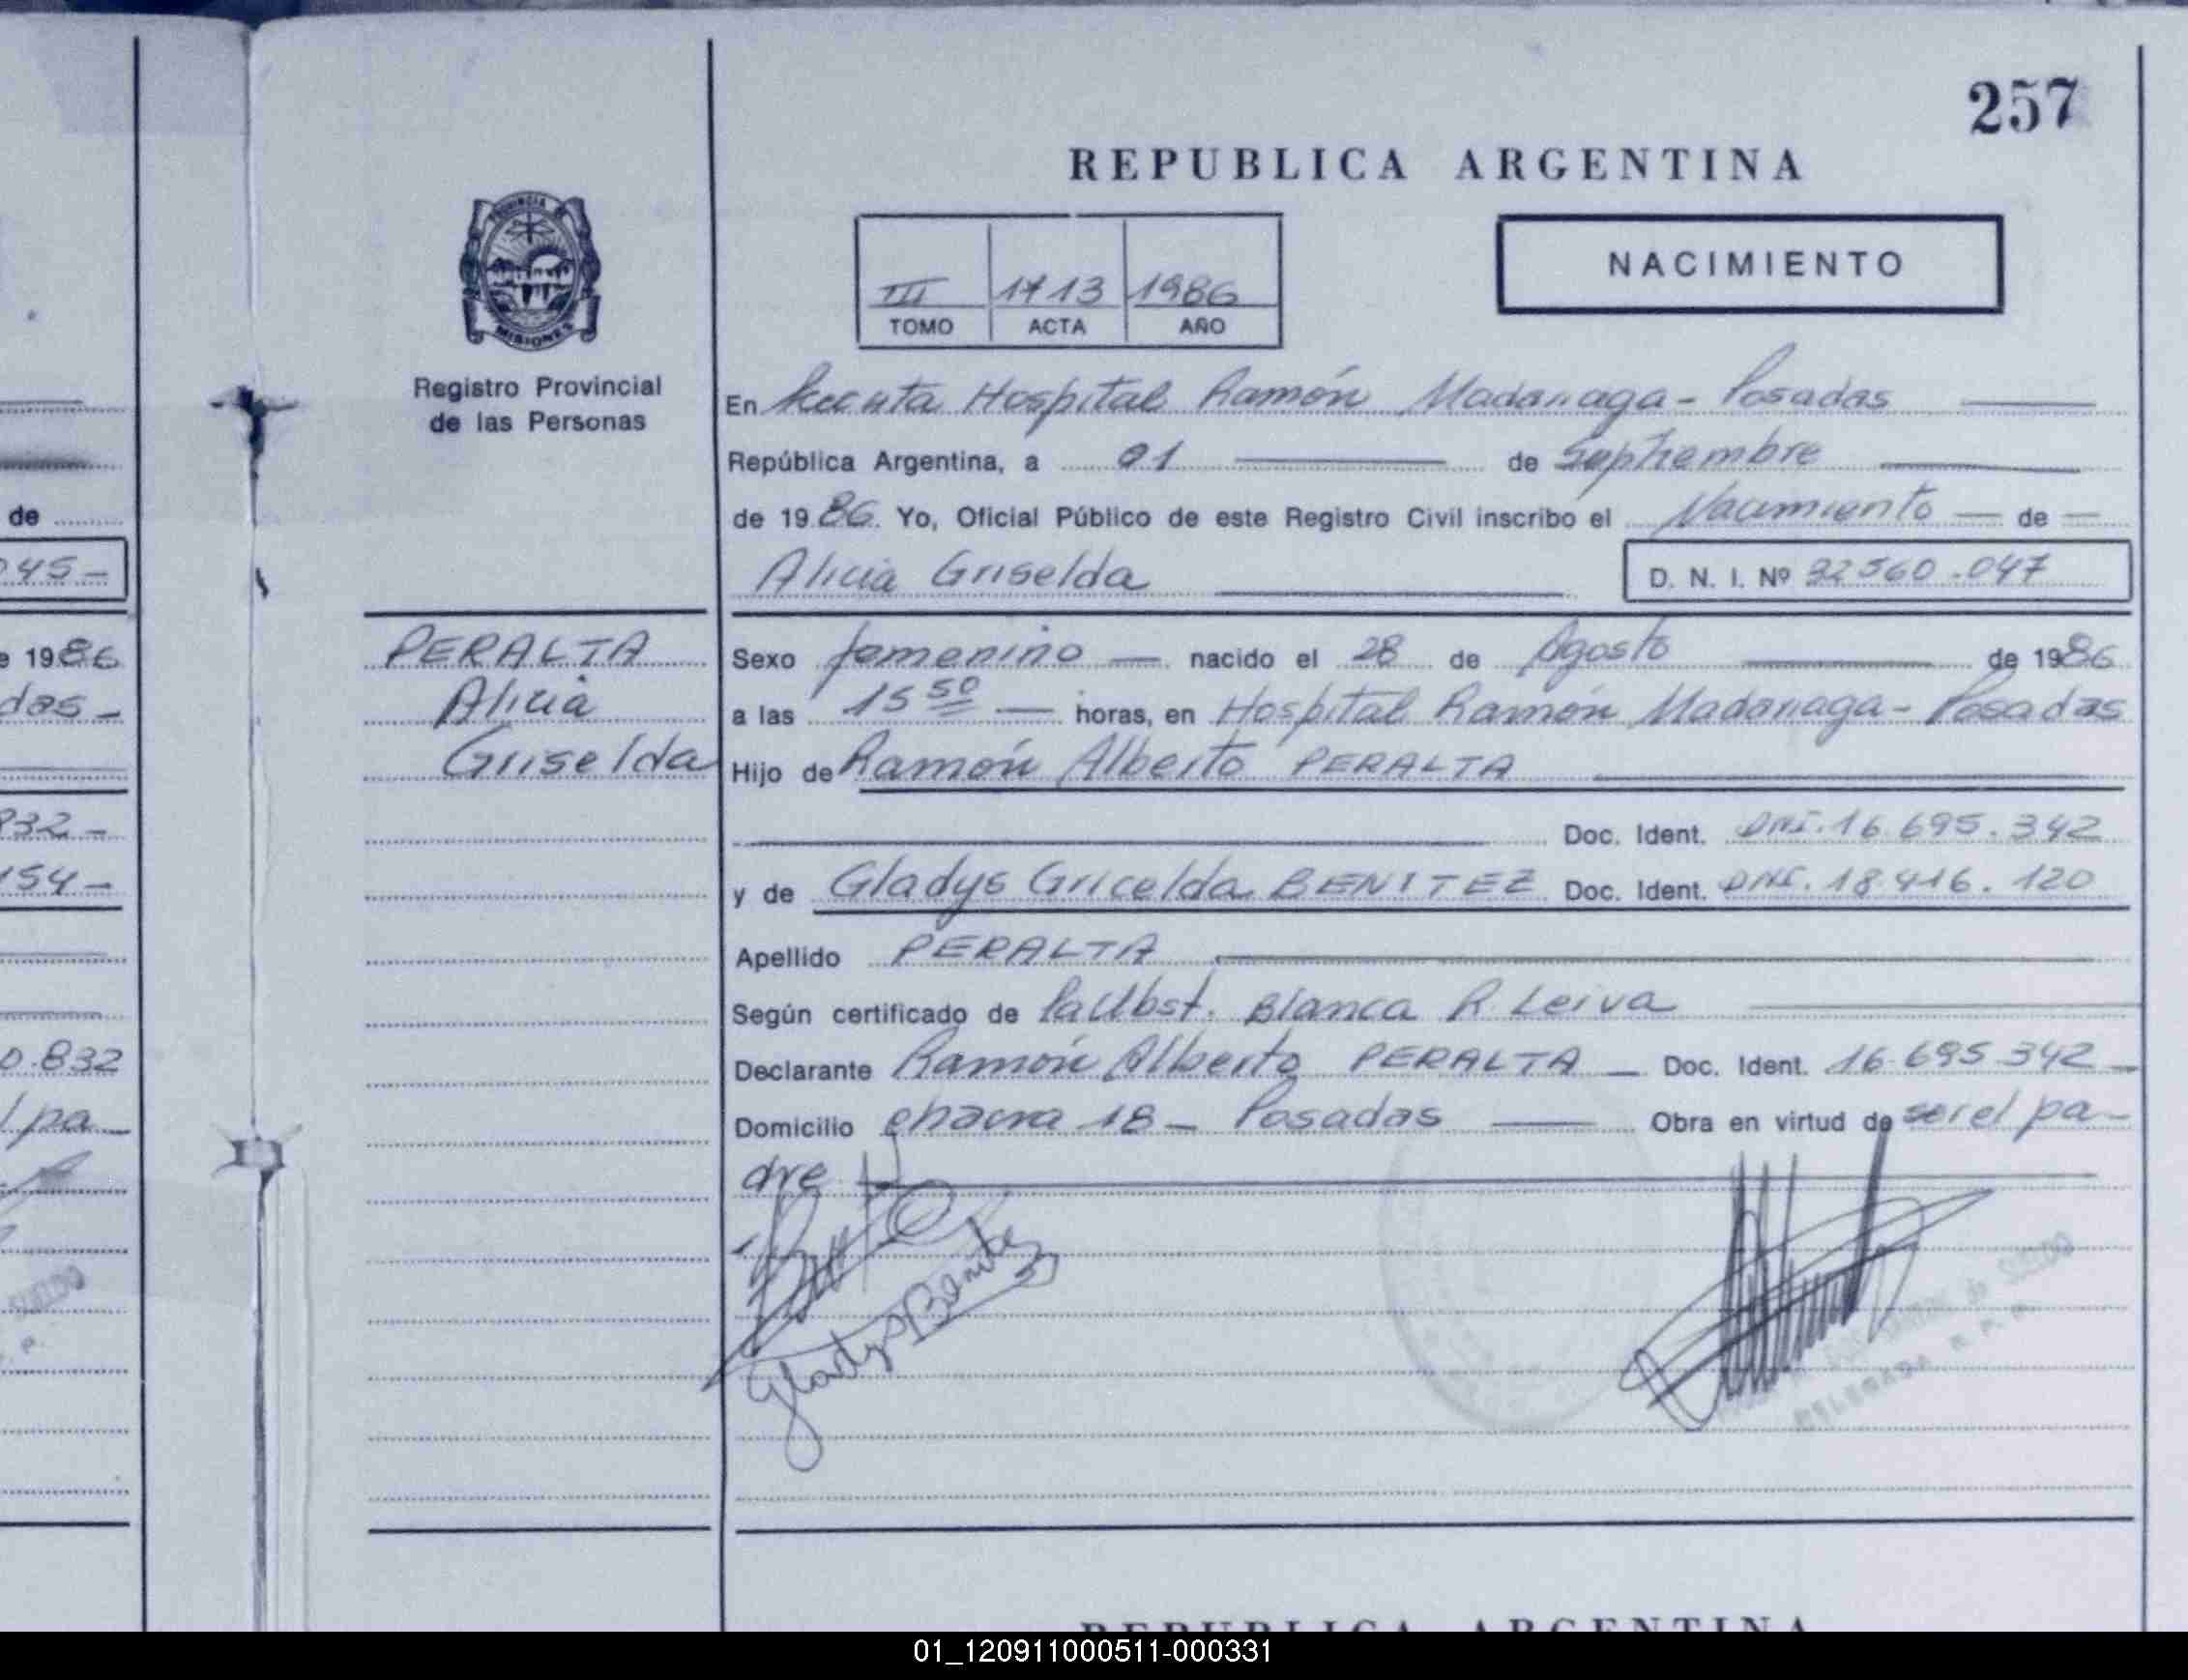 257
REPUBLICA ARGENTINA
PROVINCIA DE
MISIONES
Registro Provincial
de las Personas
III 1713 1986
TOMO ACTA AÑO
NACIMIENTO
En Hospital Ramón Madariaga - Posadas
República Argentina, a 01 de Septiembre
de 1986. Yo, Oficial Público de este Registro Civil inscribo el Nacimiento de
Alicia Griselda
D. N. I. Nº 32560.047
PERALTA
Alicia
Griselda
Sexo femenino nacido el 28 de Agosto de 1986
a las 15 50 horas, en Hospital Ramón Madariaga - Posadas
Hijo de Ramón Alberto PERALTA
Doc. Ident. DNI. 16.695.342
y de Gladys Gricelda BENITEZ Doc. Ident. DNI. 18.416.120
Apellido PERALTA
Según certificado de Blanca R. Leiva
Declarante Ramón Alberto PERALTA Doc. Ident. 16.695.342
Domicilio chacra 18 - Posadas Obra en virtud de ser el pa-
dre
Gladys Benitez
DELEGADA R. P. P.
de
045-
e 1986
das-
932-
154-
0.832
l pa-
REPUBLICA ARGENTINA
01_120911000511-000331